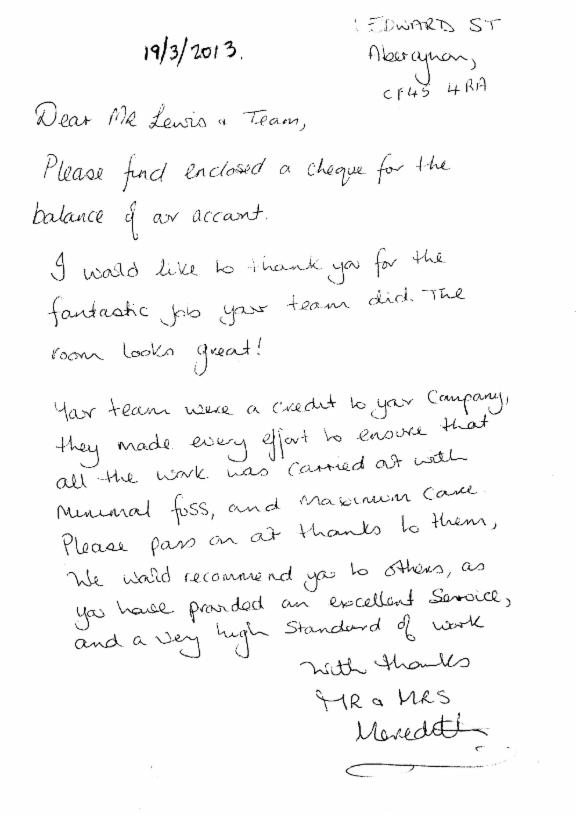 1 EDWARD ST
19/3/2013.
Abercynon,
CF45 4RA
Dear Mr Lewis & Team,
Please find enclosed a cheque for the
balance of our account.
I would like to thank you for the
fantastic job your team did. The
room looks great!
Your team were a credit to your Company,
they made every effort to ensure that
all the work was carried out with
Minimal fuss, and maximum care.
Please pass on our thanks to them,
We would recommend you to others, as
you have provided an excellent Service,
and a very high Standard of work
With thanks
MR & MRS
Meredith